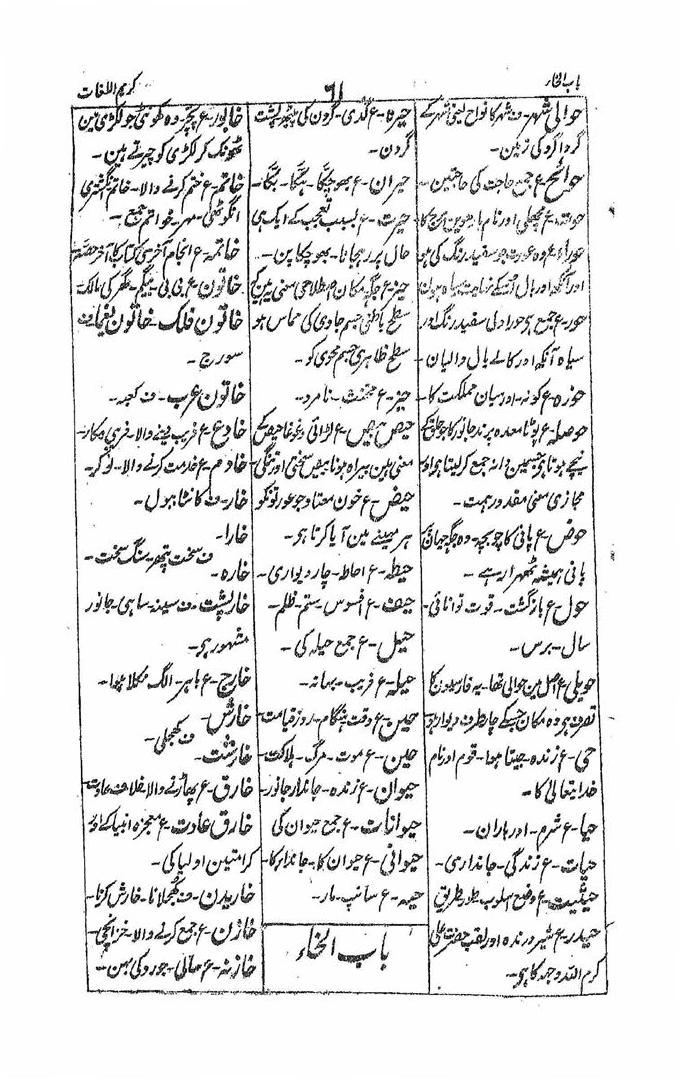 باب الخاء
۶۱
کریم اللغات
حوالی شہر۔ ف شہر کا نواح یعنی شہر کے
گردا گرد کی زمین۔
حوائج۔ ع جمع حاجت کی حاجتین۔
حوت۔ ع مچھلی اور نام
حوراء۔ ع وہ عورت جو سفید رنگ کی ہو
اور آنکھ اور بال اسکے نہایت سیاہ ہون
حور۔ ع جمع ہی حورا ولی سفید رنگ اور
سیاہ آنکھ اور کالے بال والیان۔
حوزہ۔ ع کونہ۔ اور میان مملکت کا۔
حوصلہ۔ ع پوٹا معدہ پرند جانور کا جو گلے کے
نیچے ہوتا ہی جسمین دانہ جمع کر لیتا ہی اور
مجازی معنی مقدور ہمت۔
حوض۔ ع پانی کا چوبچہ۔ وہ جگہ جہان
پانی ہمیشہ ٹھہرا رہے۔
حول۔ ع بازگشت۔ قوت توانائی۔
سال۔ برس۔
حویلی۔ ع اصل مین حوالی تھا۔ یہ فارسیون کا
تصرف ہی وہ مکان جسکے چار طرف دیوار ہو
حی۔ ع زندہ۔ جیتا ہوا۔ قوم اور نام
خدا تعالیٰ کا۔
حیا۔ ع شرم۔ اور باران۔
حیات۔ ع زندگی۔ جانداری۔
حیثیت۔ ع وضع اسلوب۔ طور طریق
حیدر۔ ع شیر درندہ اور لقب حضرت علی
کرم اللہ وجہہ کا ہی۔
ع گدی۔ گردن کی پشت
گردن۔
حیران۔ ع بھوچکا۔ ہکا۔ بکا۔
حیرت۔ ع بسبب تعجب کے ایک ہی
حال پر رہجانا۔ بھوچکا پن۔
حیز۔ ع جگہ مکان اصطلاحی معنی ہین
سطح باطنی جسم حاوی کی مماس ہو
سطح ظاہری جسم محوی کو۔
حیز۔ ع مخنث۔ نامرد۔
حیص بیص۔ ع لڑائی و غوغا حیص کے
معنی ہین بیراہ ہونا بیص سختی اور تنگی
حیض۔ ع خون معتاد جو عورتونکو
ہر مہینے مین آیا کرتا ہی۔
حیطہ۔ ع احاطہ۔ چار دیواری۔
حیف۔ ع افسوس۔ ستم۔ ظلم۔
حیل۔ ع جمع حیلہ کی۔
حیلہ۔ ع فریب۔ بہانہ۔
حین۔ ع وقت ہنگام۔ روز قیامت
حین۔ ع موت۔ مرگ۔ ہلاکت
حیوان۔ ع زندہ۔ جاندار جانور۔
حیوانات۔ ع جمع حیوان کی
حیوانی۔ ع حیوان کا۔ جاندار کا۔
حیہ۔ ع سانپ۔ مار۔
باب الخاء
خابور۔ ع پچر۔ وہ کھونٹی جو لکڑی مین
ٹھونک کر لکڑی کو چیرتے ہین۔
خاتم۔ ع ختم کرنے والا۔ خاتم انگشتری
انگوٹھی۔ مہر۔ خواتم جمع۔
خاتمہ۔ ع انجام آخر کسی کتاب کا آخر حصہ
خاتون۔ ع بی بی۔ بیگم۔ گھر کی مالک
خاتون فلک۔ خاتون یغما۔ ف
سورج۔
خاتون عرب۔ ف کعبہ۔
خادع۔ ع فریب دینے والا۔ فریبی مکار۔
خادم۔ ع خدمت کرنے والا۔ نوکر۔
خار۔ ف کانٹا ببول۔
خارا۔
ف سخت پتھر۔ سنگ سخت۔
خارہ۔
خارپشت۔ ف سیہ۔ ساہی۔ جانور
مشہور ہی۔
خارج۔ ع باہر۔ الگ۔ نکلا ہوا۔
خارش۔
ف کھجلی۔
خارشت۔
خارق۔ ع پھاڑنے والا۔ خلاف عادت
خارق عادت۔ ع معجزہ انبیا کے اور
کرامتین اولیا کی۔
خاریدن۔ ف کھجلانا۔ خارش کرنا۔
خازن۔ ع جمع کرنے والا۔ خزانچی۔
خازنہ۔ ع سالی۔ جورو کی بہن۔